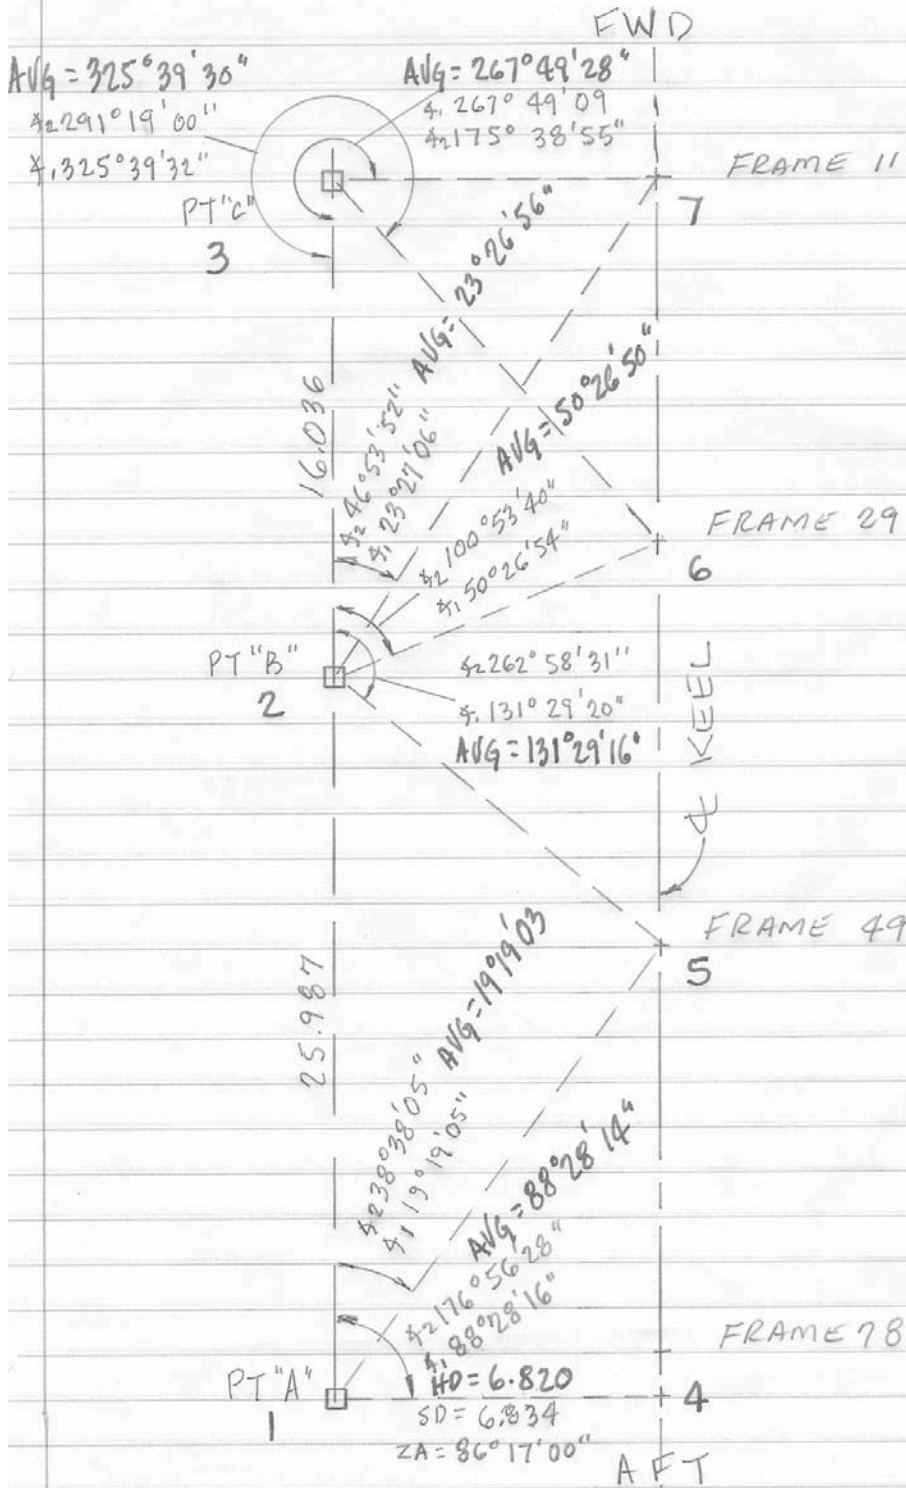 FWD
AVG = 325°39'30"
∡2 291°19'00"
∡1 325°39'32"
AVG = 267°49'28"
∡1 267° 49'09
∡2 175° 38'55"
FRAME 11
7
PT "C"
3
16.036
∡2 46°53'52"
∡1 23°27'06"
AVG = 23°26'56"
∡2 100°53'40"
∡1 50°26'54"
AVG = 50°26'50"
FRAME 29
6
PT "B"
2
∡2 262°58'31"
∡1 131°29'20"
AVG = 131°29'16"
℄ KEEL
FRAME 49
5
25.987
∡2 38°38'05"
∡1 19°19'05"
AVG = 19°19'03
∡2 176°56'28"
∡1 88°28'16"
AVG = 88°28'14"
FRAME 78
PT "A"
1
HD = 6.820
SD = 6.834
ZA = 86°17'00"
4
AFT